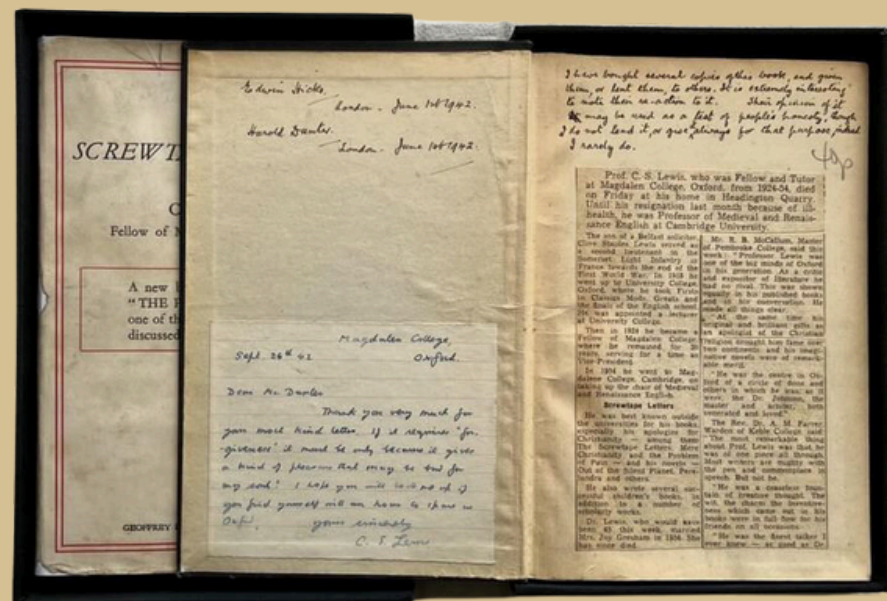 SCREWT
C
Fellow of M
A new b
"THE P
one of th
discussed
GEOFFREY
Edwin Hicks.
London - June 1st 1942.
Harold Dawter.
London - June 1st 1942.
Magdalen College,
Oxford.
Sept. 26th 42
Dear Mr.
Thank you very much for
your most kind letter. If it requires 'for-
-giveness' it must be only because it gives
a kind of pleasure that may be bad for
my soul! I hope you will look me up if
you find yourself with an hour to spare in
Oxford.
yours sincerely
C. S. Lewis
I have bought several copies of this book, and given
them, or lent them, to others. It is extremely interesting
to note their re-action to it. Their opinion of it
may be used as a test of people's honesty, though
I do not lend it, or give, always for that purpose, indeed
I rarely do.
40p
Prof. C. S. Lewis, who was Fellow and Tutor
at Magdalen College, Oxford, from 1924-54, died
on Friday at his home in Headington Quarry.
Until his resignation last month because of ill-
health, he was Professor of Medieval and Renais-
sance English at Cambridge University.
The son of a Belfast solicitor,
Clive Staples Lewis served as
a second lieutenant in the
Somerset Light Infantry in
France towards the end of the
First World War. In 1918 he
went up to University College,
Oxford, where he took Firsts
in Classics Mods, Greats and
the finals of the English school.
He was appointed a lecturer
at University College.
Then in 1924 he became a
Fellow of Magdalen College,
where he remained for 30
years, serving for a time as
Vice-President.
In 1954 he went to Mag-
dalene College, Cambridge, on
taking up the chair of Medieval
and Renaissance English.
Screwtape Letters
He was best known outside
the universities for his books,
especially his apologies for
Christianity — among them
The Screwtape Letters, Mere
Christianity and the Problem
of Pain — and his novels —
Out of the Silent Planet, Pere-
landra and others.
He also wrote several suc-
cessful children's books, in
addition to a number of
scholarly works.
Dr. Lewis, who would have
been 65 this week, married
Mrs. Joy Gresham in 1956. She
has since died.
Mr. R. B. McCallum, Master
of Pembroke College, said this
week: "Professor Lewis was
one of the big minds of Oxford
in his generation. As a critic
and expositor of literature he
had no rival. This was shown
equally in his published books
and in his conversation. He
made all things clear.
"At the same time his
original and brilliant gifts as
an apologist of the Christian
religion brought him fame over
two continents and his imagi-
native novels were of remark-
able merit.
"He was the centre in Ox-
ford of a circle of dons and
others in which he was, as it
were, the Dr. Johnson, the
master and scholar, both
venerated and loved."
The Rev. Dr. A. M. Farrer,
Warden of Keble College said:
"The most remarkable thing
about Prof. Lewis was that he
was of one piece all through.
Most writers are mighty with
the pen and commonplace in
speech. But not he.
"He was a ceaseless foun-
tain of creative thought. The
wit, the charm the inventive-
ness which came out in his
books were in full flow for his
friends on all occasions.
"He was the finest talker I
ever knew — as good as Dr.